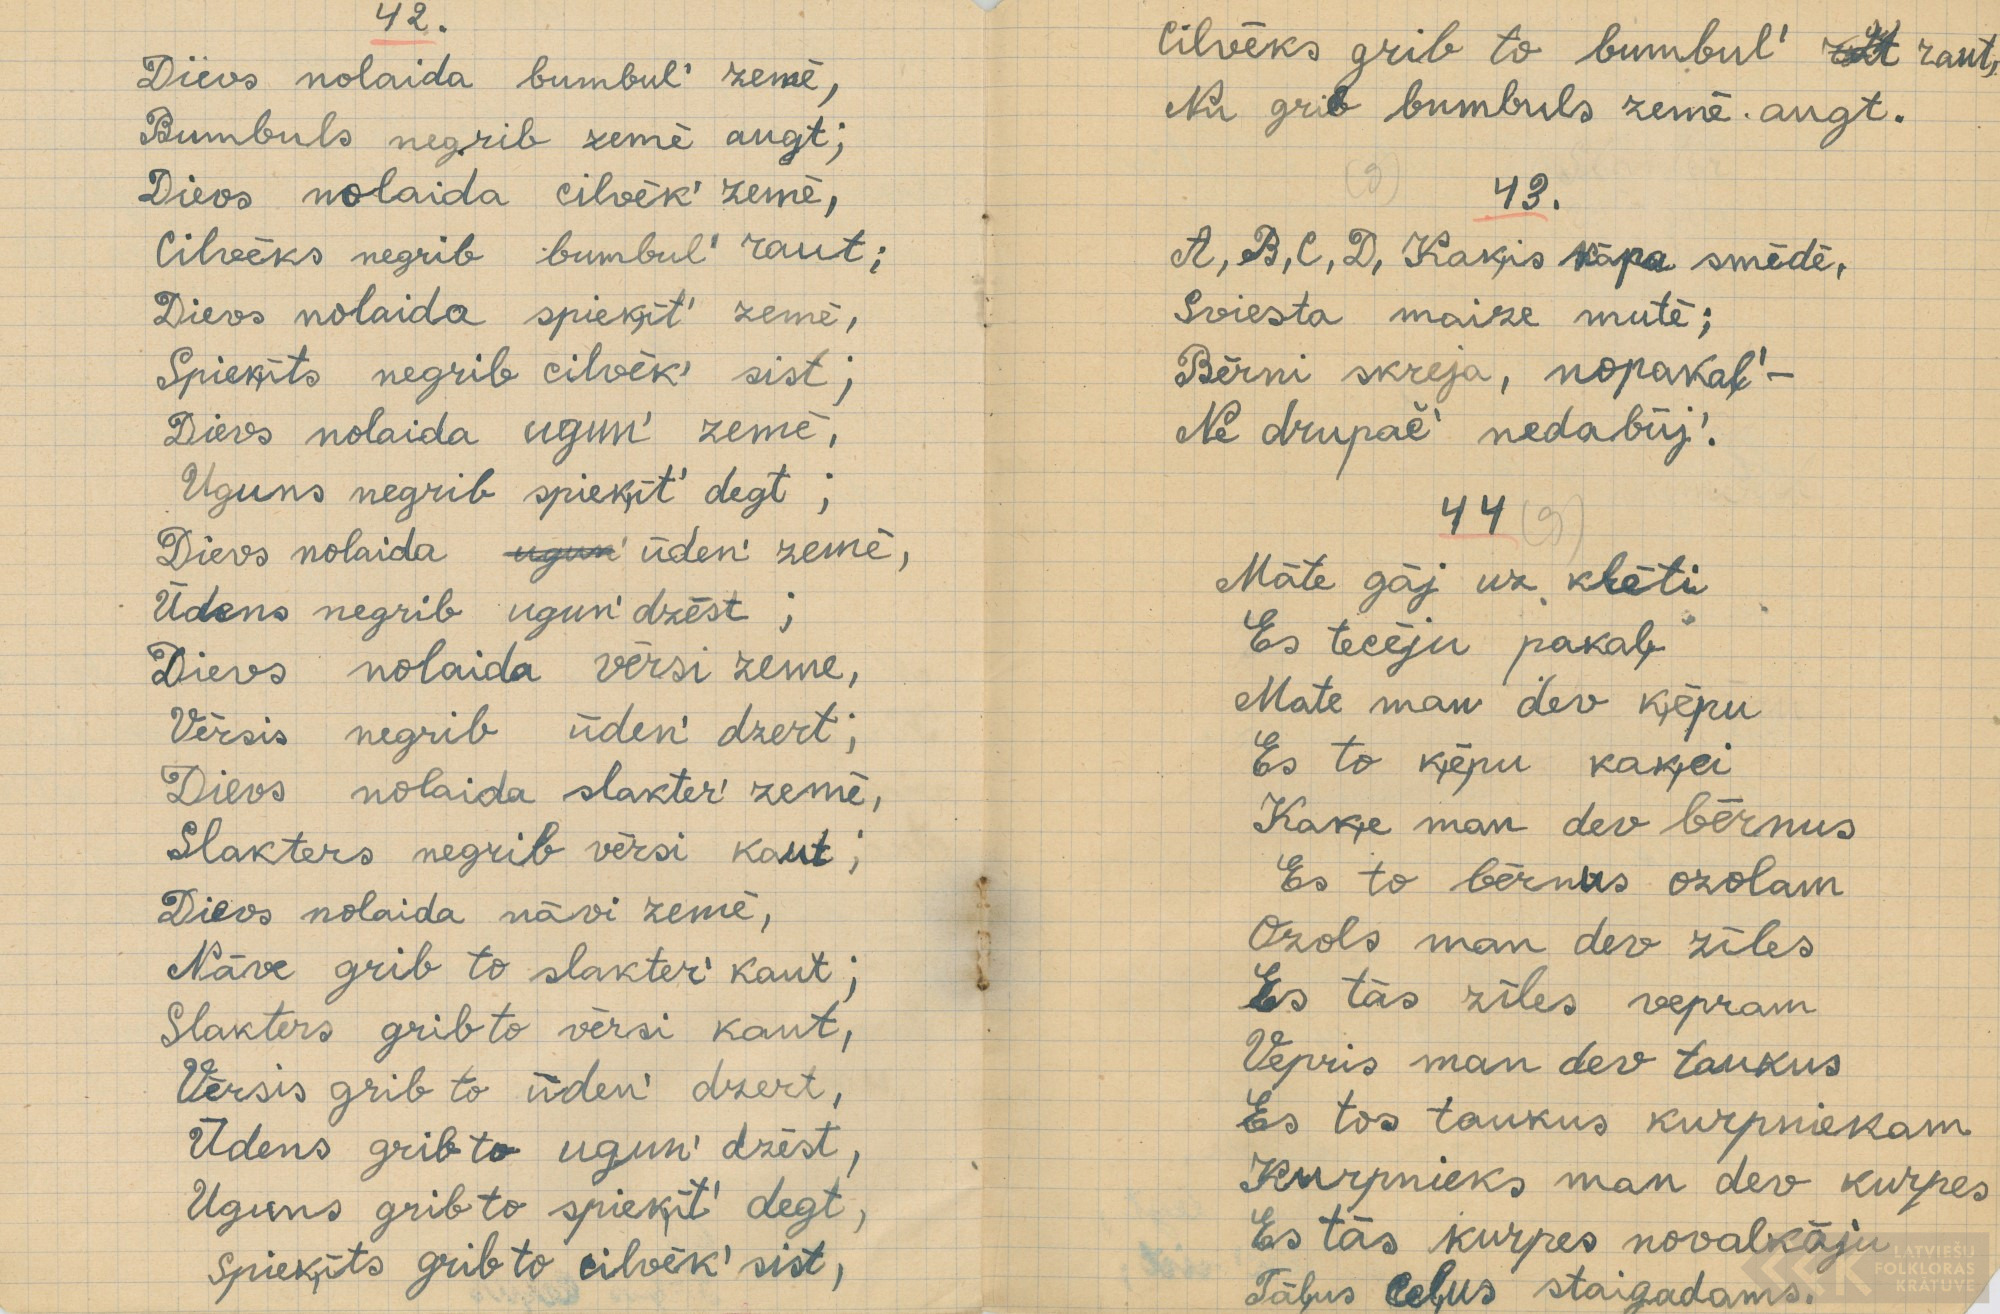 42.
Dievs nolaida bumbul' zemē,
Bumbuls negrib zemē augt;
Dievs nolaida cilvēk' zemē,
Cilvēks negrib bumbul' raut;
Dievs nolaida spieķīt' zemē,
Spieķīts negrib cilvēk' sist;
Dievs nolaida ugun' zemē,
Uguns negrib spieķīt' degt;
Dievs nolaida ugun' ūden' zemē,
Ūdens negrib ugun' dzēst;
Dievs nolaida vērsi zeme,
Vērsis negrib ūden' dzert;
Dievs nolaida slakter' zemē,
Slakters negrib vērsi kaut;
Dievs nolaida nāvi zemē,
Nāve grib to slakter' kaut;
Slakters grib to vērsi kaut,
Vērsis grib to ūden' dzert,
Ūdens grib to ugun' dzēst,
Uguns grib to spieķīt' degt,
Spieķīts grib to cilvēk' sist,
Cilvēks grib to bumbul' raut,
Nu grib bumbuls zemē augt.
(g)
43.
A, B, C, D, Kaķis kāpa smēdē,
Sviesta maize mutē;
Bērni skreja, nopakaļ' –
Ne drupač' nedabūj'.
44 (g)
Māte gāj uz klēti
Es tecēju pakaļ
Mate man dev ķēpu
Es to ķēpu kaķei
Kaķe man dev bērnus
Es to bērnus ozolam
Ozols man dev zīles
Es tās zīles vepram
Vepris man dev taukus
Es tos taukus kurpniekam
Kurpnieks man dev kurpes
Es tās kurpes novalkāju
Tāļus ceļus staigadams.
LATVIEŠU
FOLKLORAS
KRĀTUVE